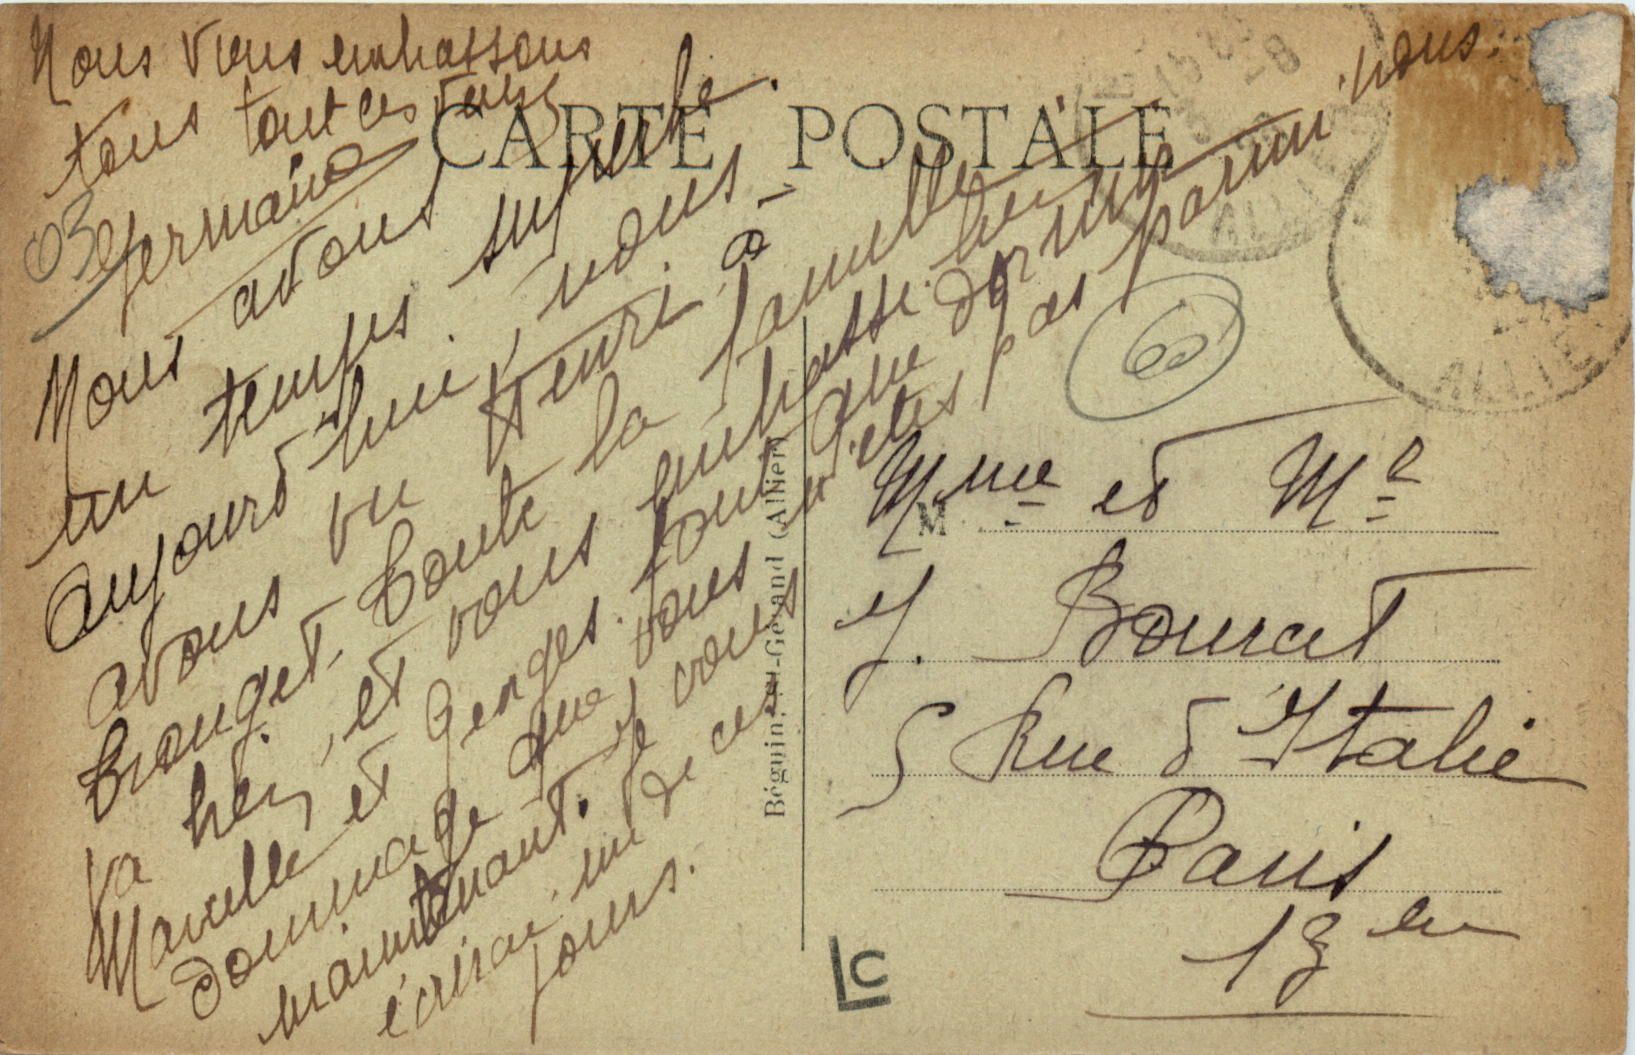 CARTE POSTALE
Nous avons
un temps superbe.
aujourd'hui, nous
avons vu Henri à
Branget. Toute la famille
va bien, et vous embrasse bien
Marcelle et Georges. Tout que
dommage que vous n'etes pas parmi nous.
maintenant. Je vous
écrirai un de ces
jours.
Nous vous embrassons
tous tout ces
Germaine
03
60
Mme et Mr
M
J. Bourcet
5 Rue d'Italie
Paris
13 em
Béguin, à St-Gérand (Allier)
ALLIER
ALLIE
LC